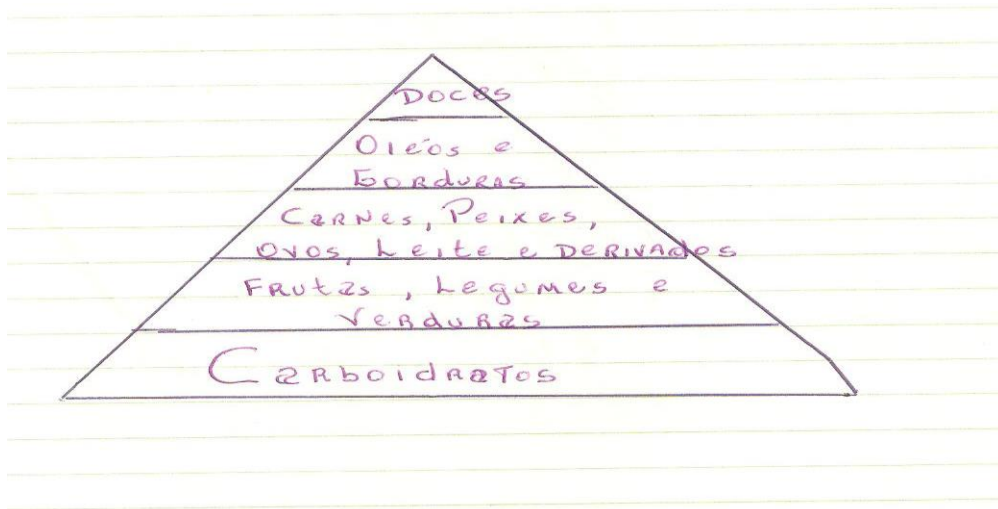 Doces
Oleós e
Gorduras
Carnes, Peixes,
Ovos, Leite e Derivados
Frutas, Legumes e
Verduras
Carboidratos